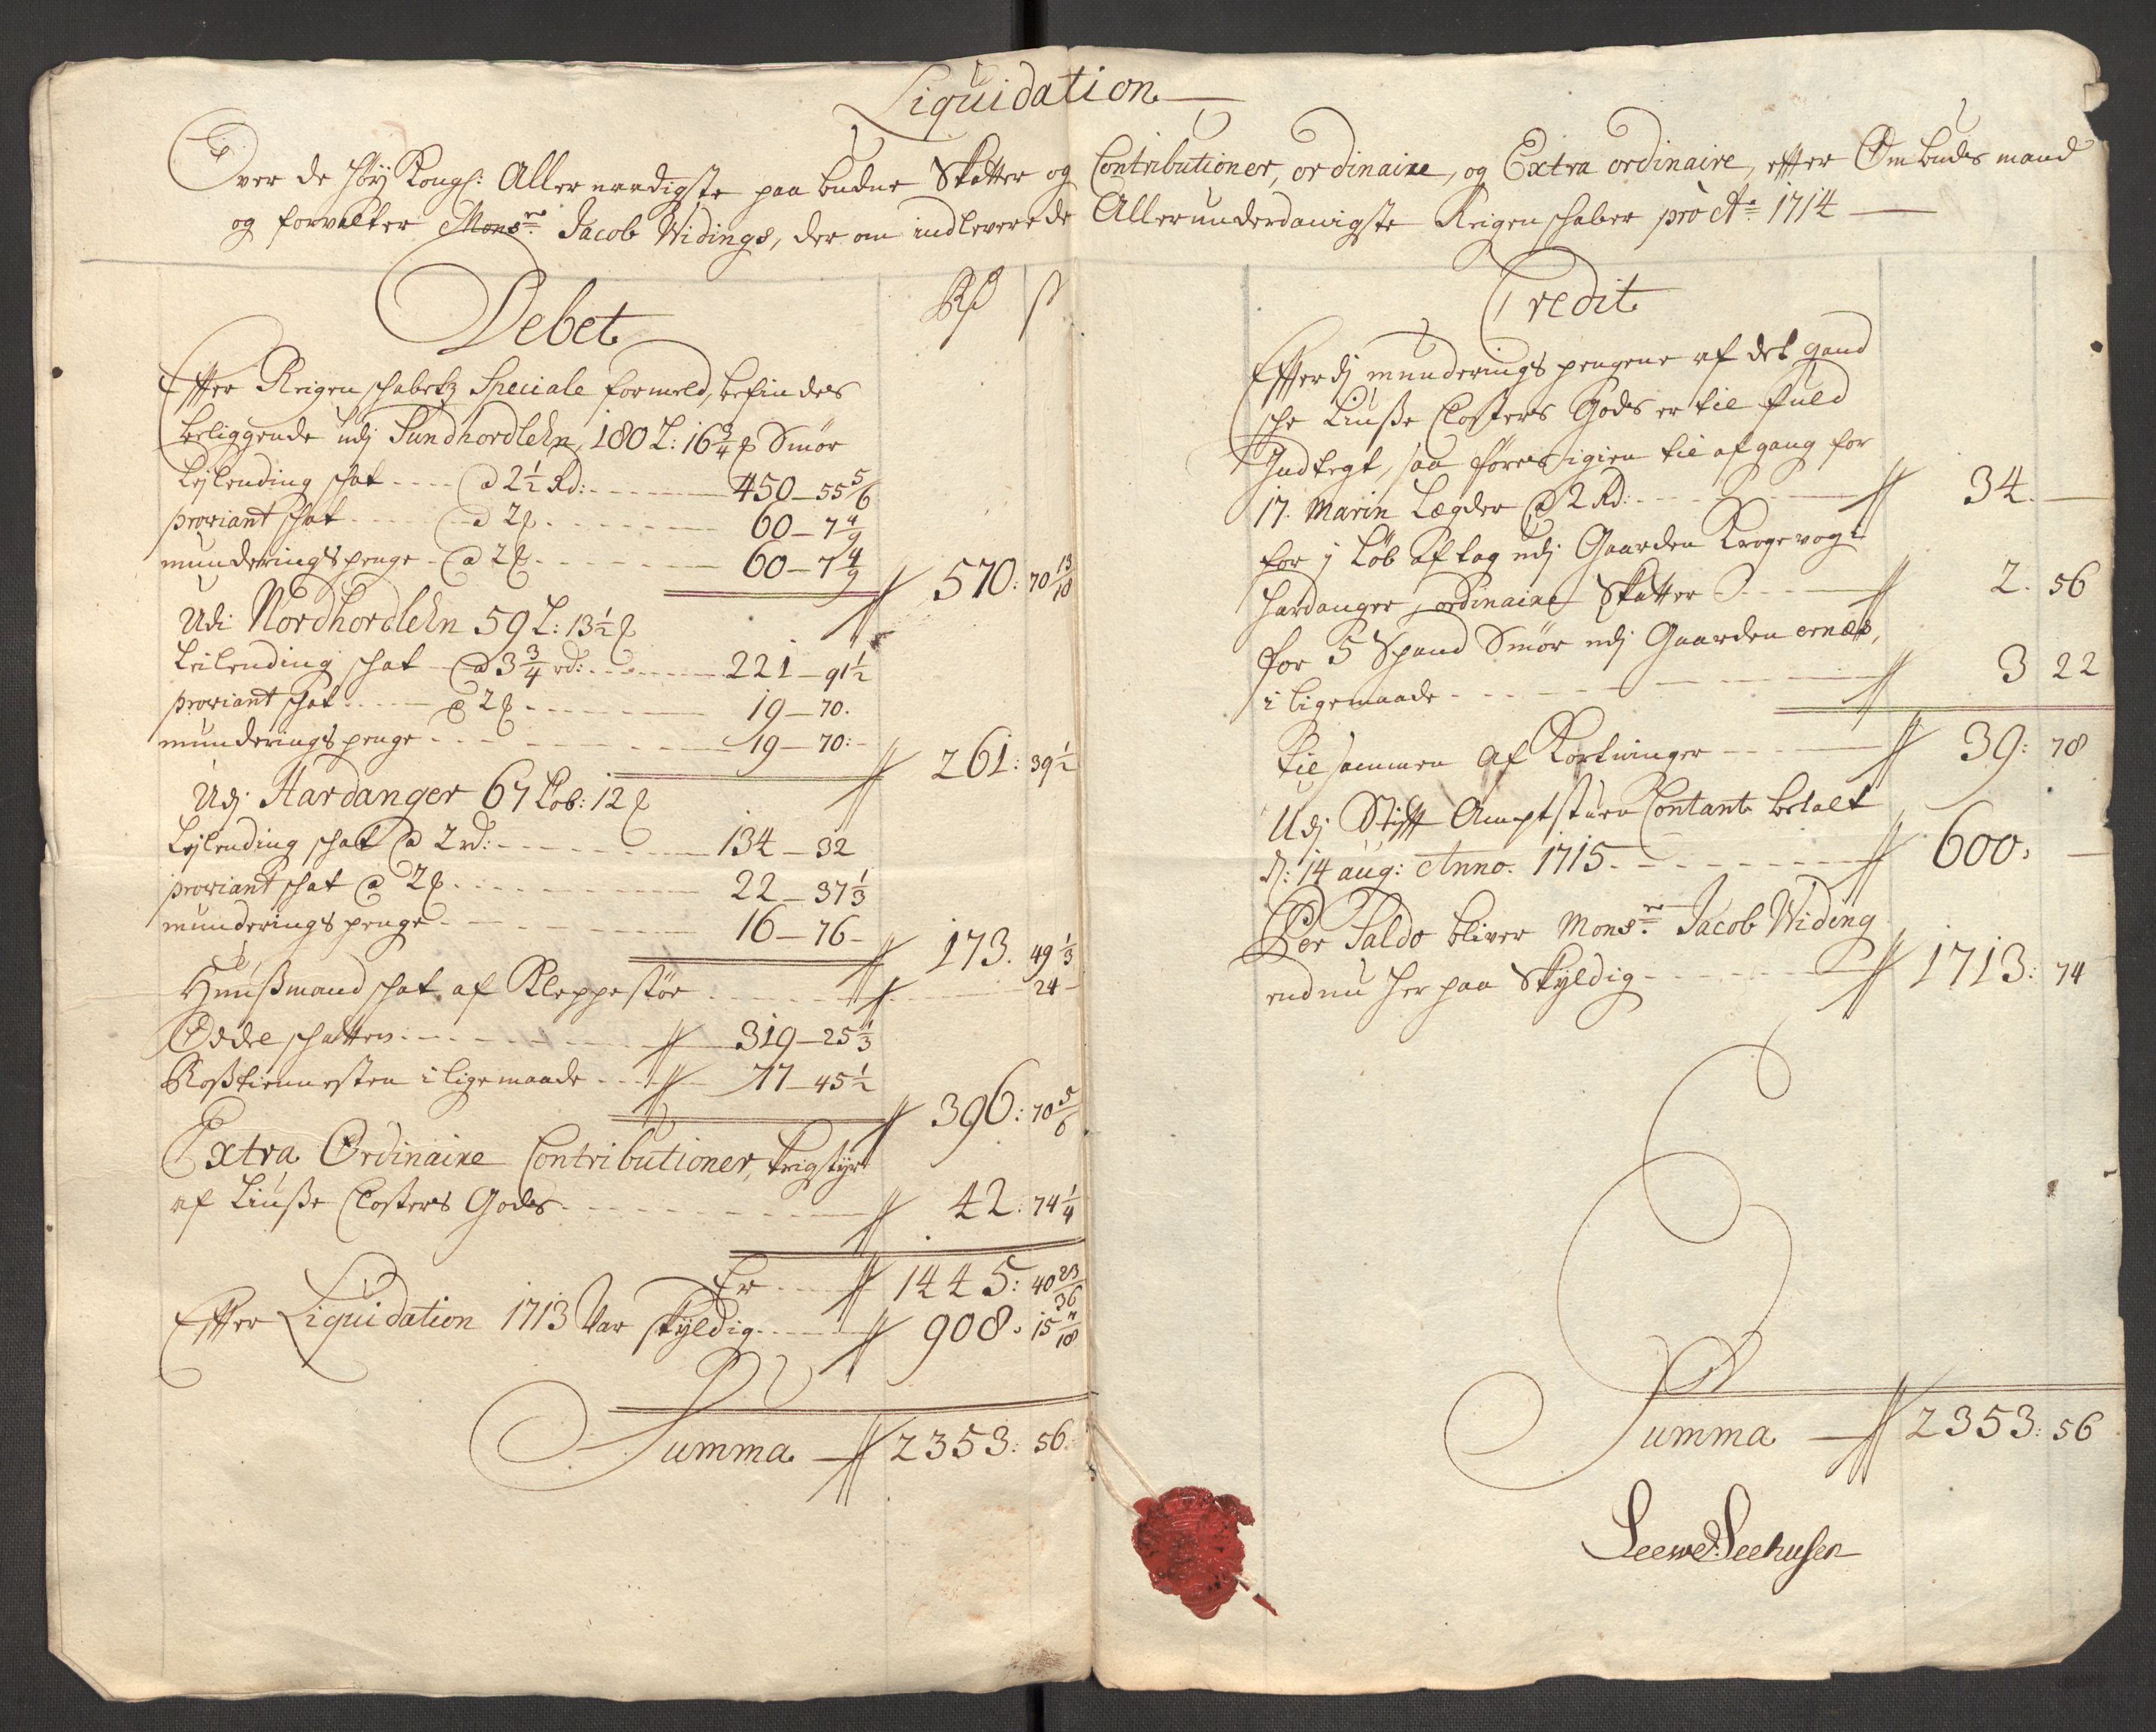 Liquidation
Over de Høy Kongl: Aller naadigste paa budne Skatter og Contributioner, ordinaire, og Extra ordinaire, effter Ombudsmand
og forvalter Monsr. Jacob Widings, der om indleverede Allerunderdanigste Reigenschaber pro Ao 1714
Debet
Rd ß
Effter Reigenschabetz Speciale formeld, befindes
beliggende udj Sundhordlehn, 180 L: 16 3/4 Smør
Lejlending schat a 2 1/2 Rd: 450 - 55 5/6
proviant schat a 2 60 - 7 4/9
munderings penge a 2 60 - 7 4/9
570: 70 13/18
Udi Nordhordlehn 59 L: 13 1/2
Leilending schat a 3 3/4 rd: 221 - 91 1/2
proviant schat a 2 19 - 70.
munderings penge 19 - 70:
261: 39 1/2
Udj Hardanger 67 Løb: 12
Lejlending schat a 2 rd: 134 - 32
proviant schat a 2 22 - 37 1/3
munderings penge 16 - 76
173. 49 1/3
Huußmand schat af Kleppestøe 24
Oddel schatten 319 - 25 1/3
Roßtiennesten i ligemaade 77 - 45 1/2
396: 70 5/6
Extra Ordinaire Contributioner, krigstyr
af Liusse Closters Gods 42: 74 1/4
Er 1445: 40 23/36
Effter Liquidation 1713 Var skyldig 908: 15
Summa 2353: 56
Credit
Effterdj munderings pengene af det gand
sche Liusse Closters Gods er til fuld
Indtegt, saa føres igien til afgang for
17. Marin Lægder a 2 Rd: 34.
for j Løb aftag udj Gaarden Krogevogt
Hardanger, ordinaire Skatter 2. 56
for 5 Spand Smør udj Gaarden
i ligemaade 3 22
Tilsammen Af Kortninger 39: 78
Udj Stifft Amptstuen Contant betalt
d: 14 aug: Anno. 1715. 600:
Per Saldo bliver Monsr. Jacob Widing
endnu her paa Skyldig 1713: 74
Summa 2353: 56
Seewel: Seehusen